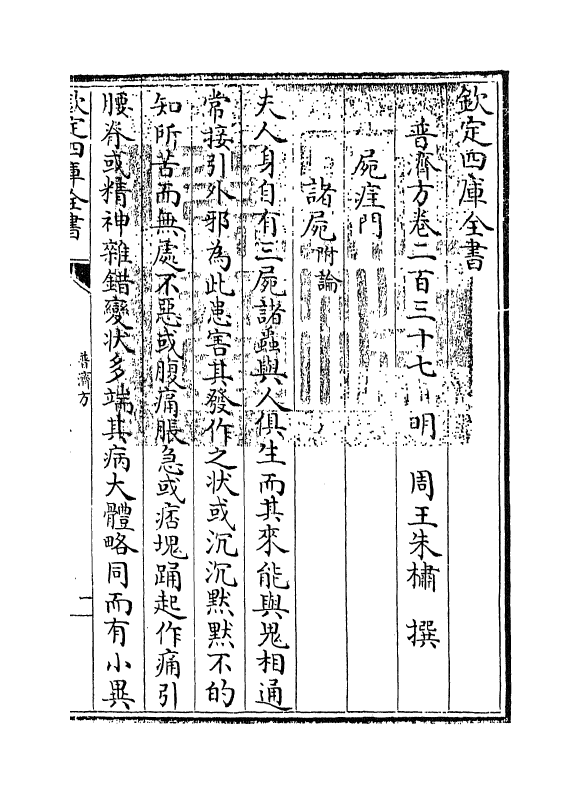 欽定四庫全書
普濟方卷二百三十七 明 周王朱橚 撰
屍疰門
諸屍附論
夫人身自有三屍諸蟲與人俱生而其來能與鬼相通
常接引外邪為此患害其發作之状或沉沉黙黙不的
知所苦而無處不惡或腹痛脹急或痞塊踊起作痛引
腰脊或精神雜錯變状多端其病大體略同而有小異
欽定四庫全書
普濟方
二